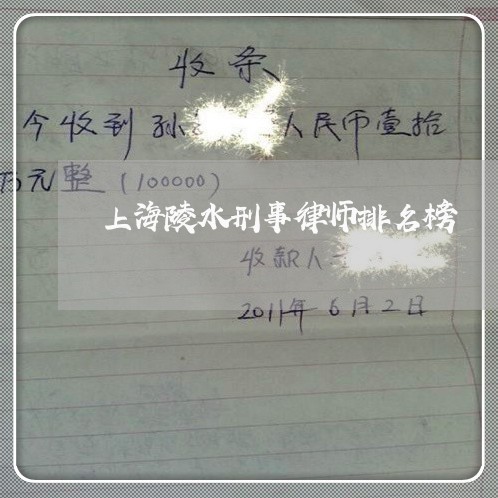 收条
今收到孙 人民币壹拾
万元整(100000)
上海陵水刑事律师排名榜
收款人:
2011年6月2日